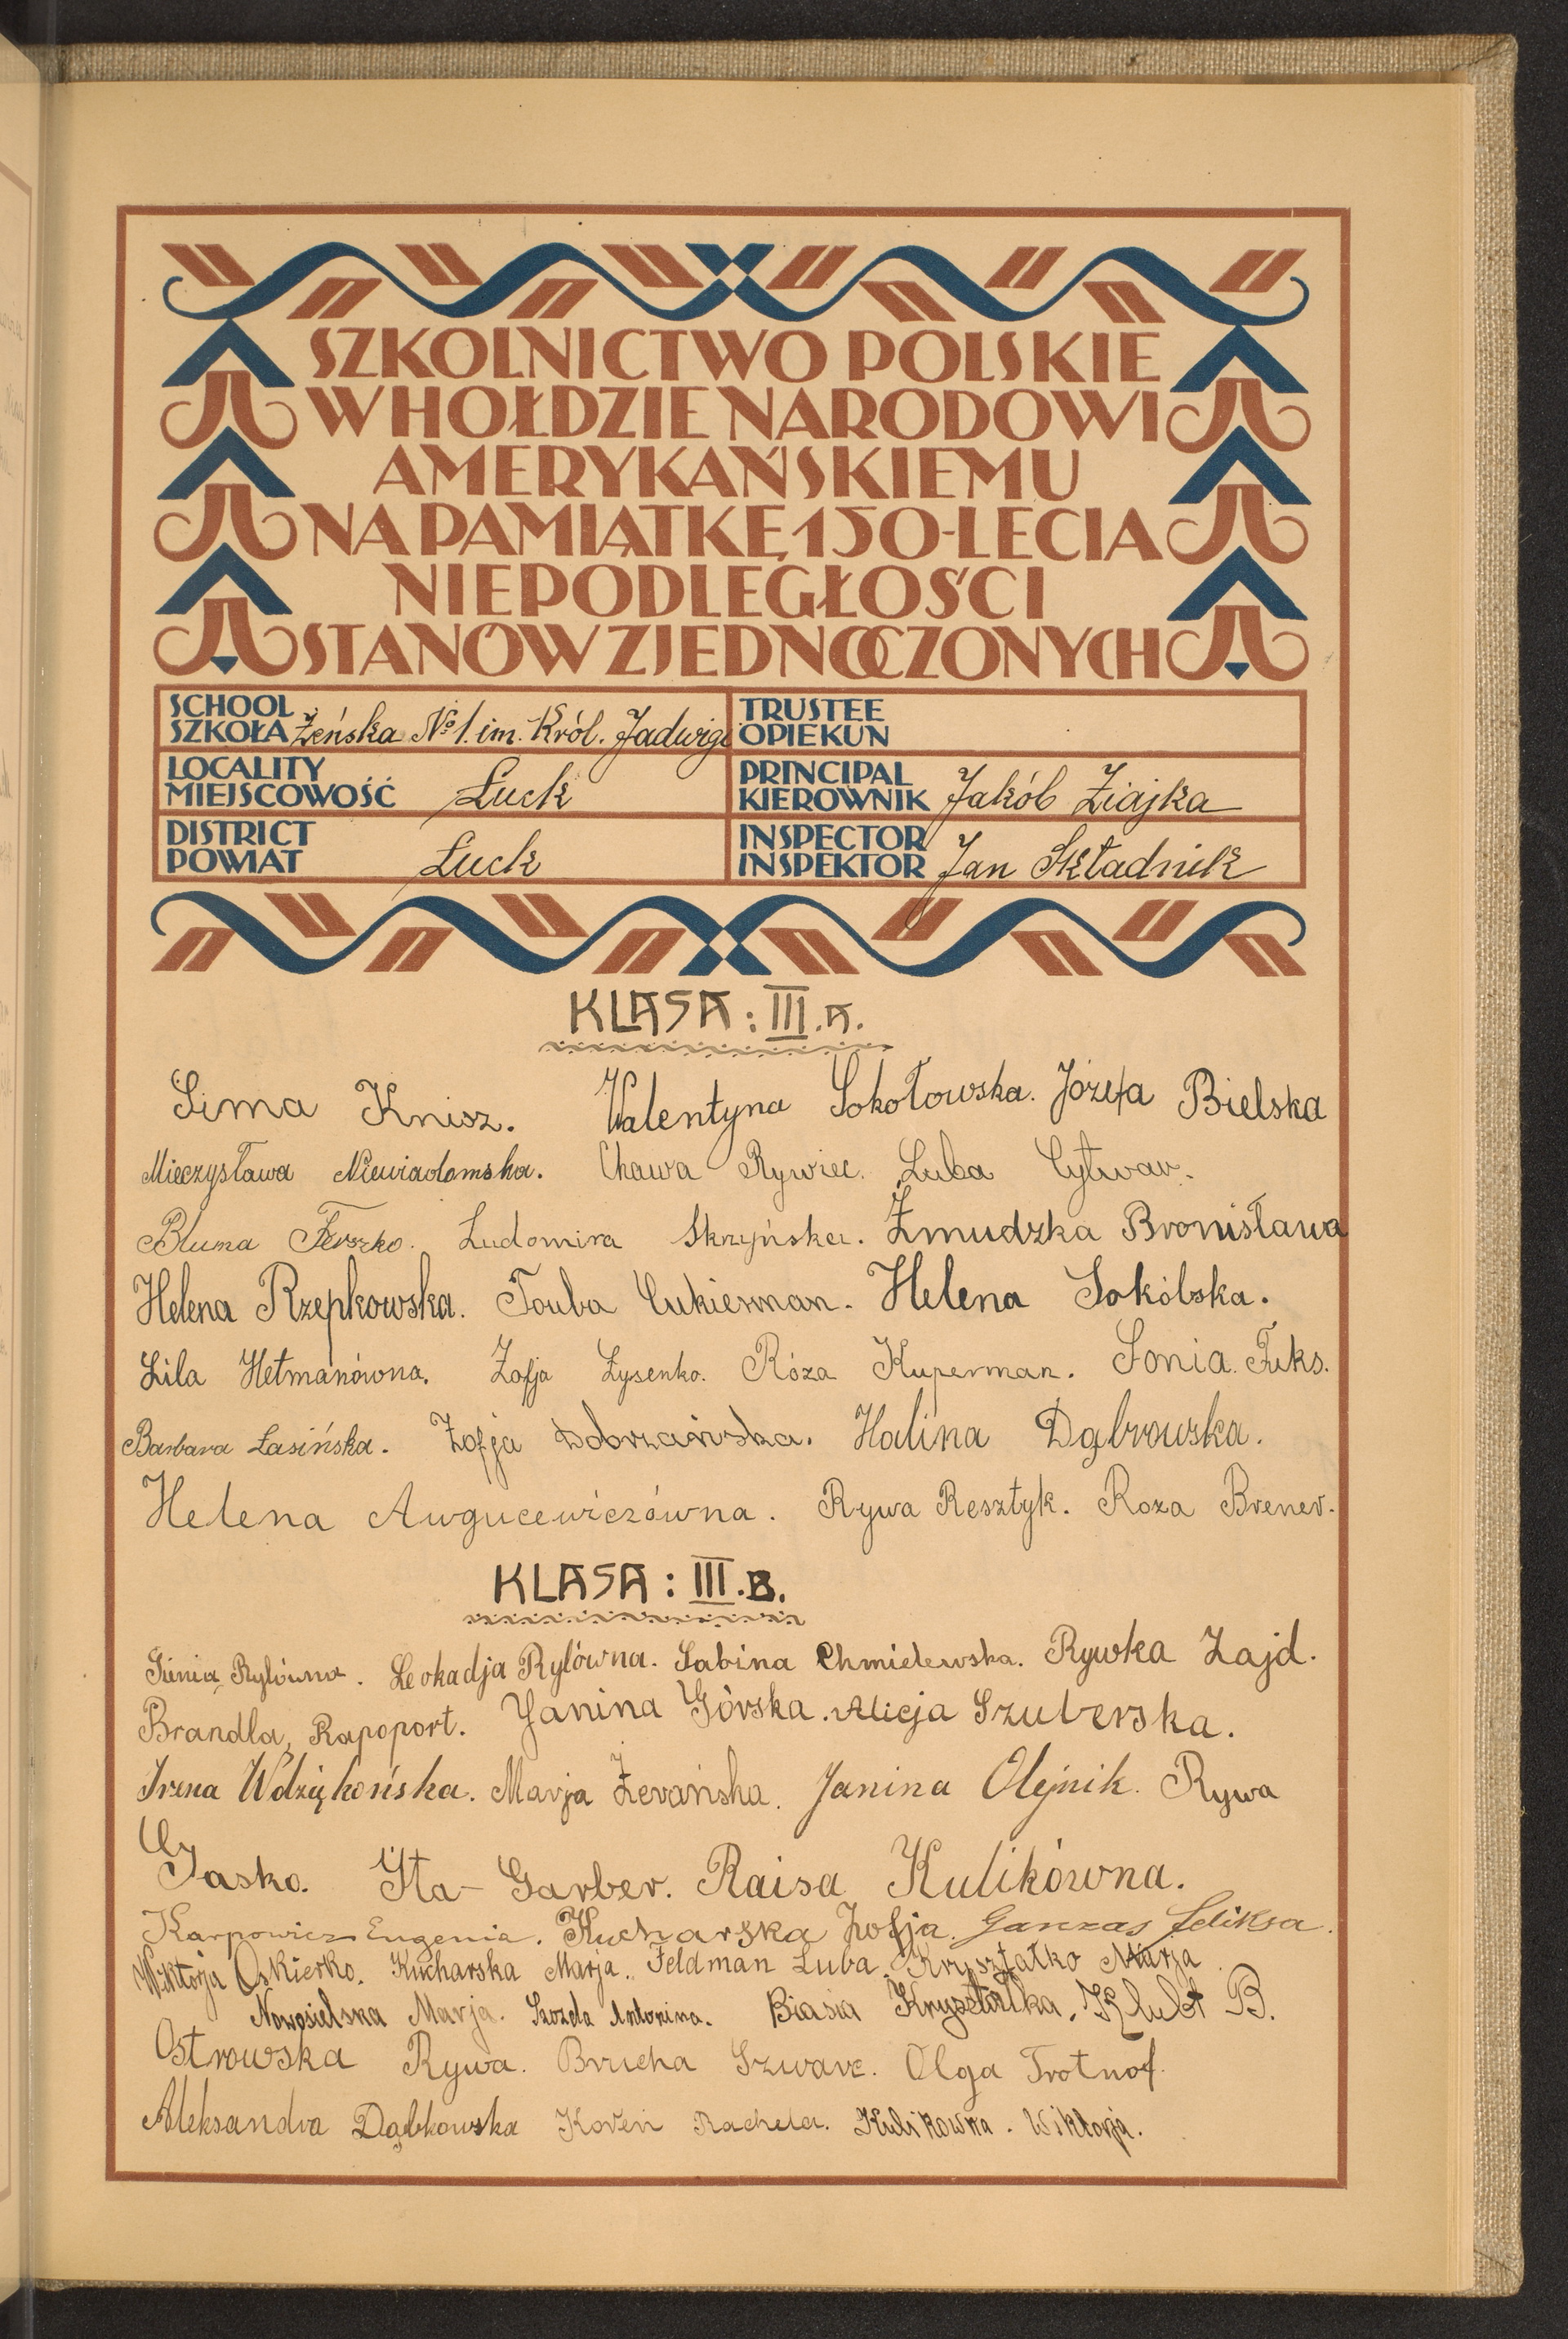 SZKOLNICTWO POLSKIE
W HOŁDZIE NARODOWI
AMERYKAŃSKIEMU
NA PAMIĄTKĘ 150-LECIA
NIEPODLEGŁOŚCI
STANÓW ZJEDNOCZONYCH
SCHOOL
SZKOŁA Żeńska № 1. im. Król. Jadwigi
TRUSTEE
OPIEKUN
LOCALITY
MIEJSCOWOŚĆ Łuck
PRINCIPAL
KIEROWNIK Jakób Ziajka
DISTRICT
POWIAT Łuck
INSPECTOR
INSPEKTOR Jan Składnik
KLASA : III.A.
Sima Knisz. Walentyna Sokołowska. Józefa Bielska
Mieczysława Niewiadomska. Chawa Rywiec. Luba
Bluma Ludomira Skrzyńska. Żmudzka Bronisława
Helena Rzepkowska. Touba Cukierman. Helena Sokólska.
Lila Hetmanówna. Zofja Łysenko. Róza Kuperman. Sonia Fuks.
Barbara Łasińska. Zofja Dobrzańska. Halina Dąbrowska.
Helena Awgucewiczówna. Rywa Resztyk. Roza Brener.
KLASA : III.B.
Gienia Rylówna. Leokadja Rylówna. Sabina Chmielewska. Rywka Zajd.
Brandla, Rapoport. Janina Górska. Alicja Szuberska.
Irena Wdziękońska. Marja Żerańska. Janina Olejnik. Rywa
Jasko. Ita- Garber. Raisa Kulikówna.
Karpowicz Eugenia. Kucharska Zofja. Ganzas Feliksa.
Wiktorja Oskierko. Kucharska Marja. Feldman Luba. Kryształko Marja.
Nowosielska Marja. Antonina. Biasia Kryształka. Klubt B.
Ostrowska Rywa. Brucha Szwarc. Olga
Aleksandra Dąbkowska Koren Rachela. Kulikowna. Wiktorja.